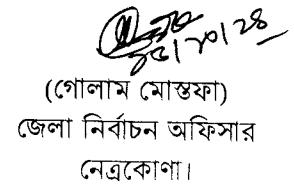 (গোলাম মোস্তফা)
জেলা নির্বাচন অফিসার
নেত্রকোণা।